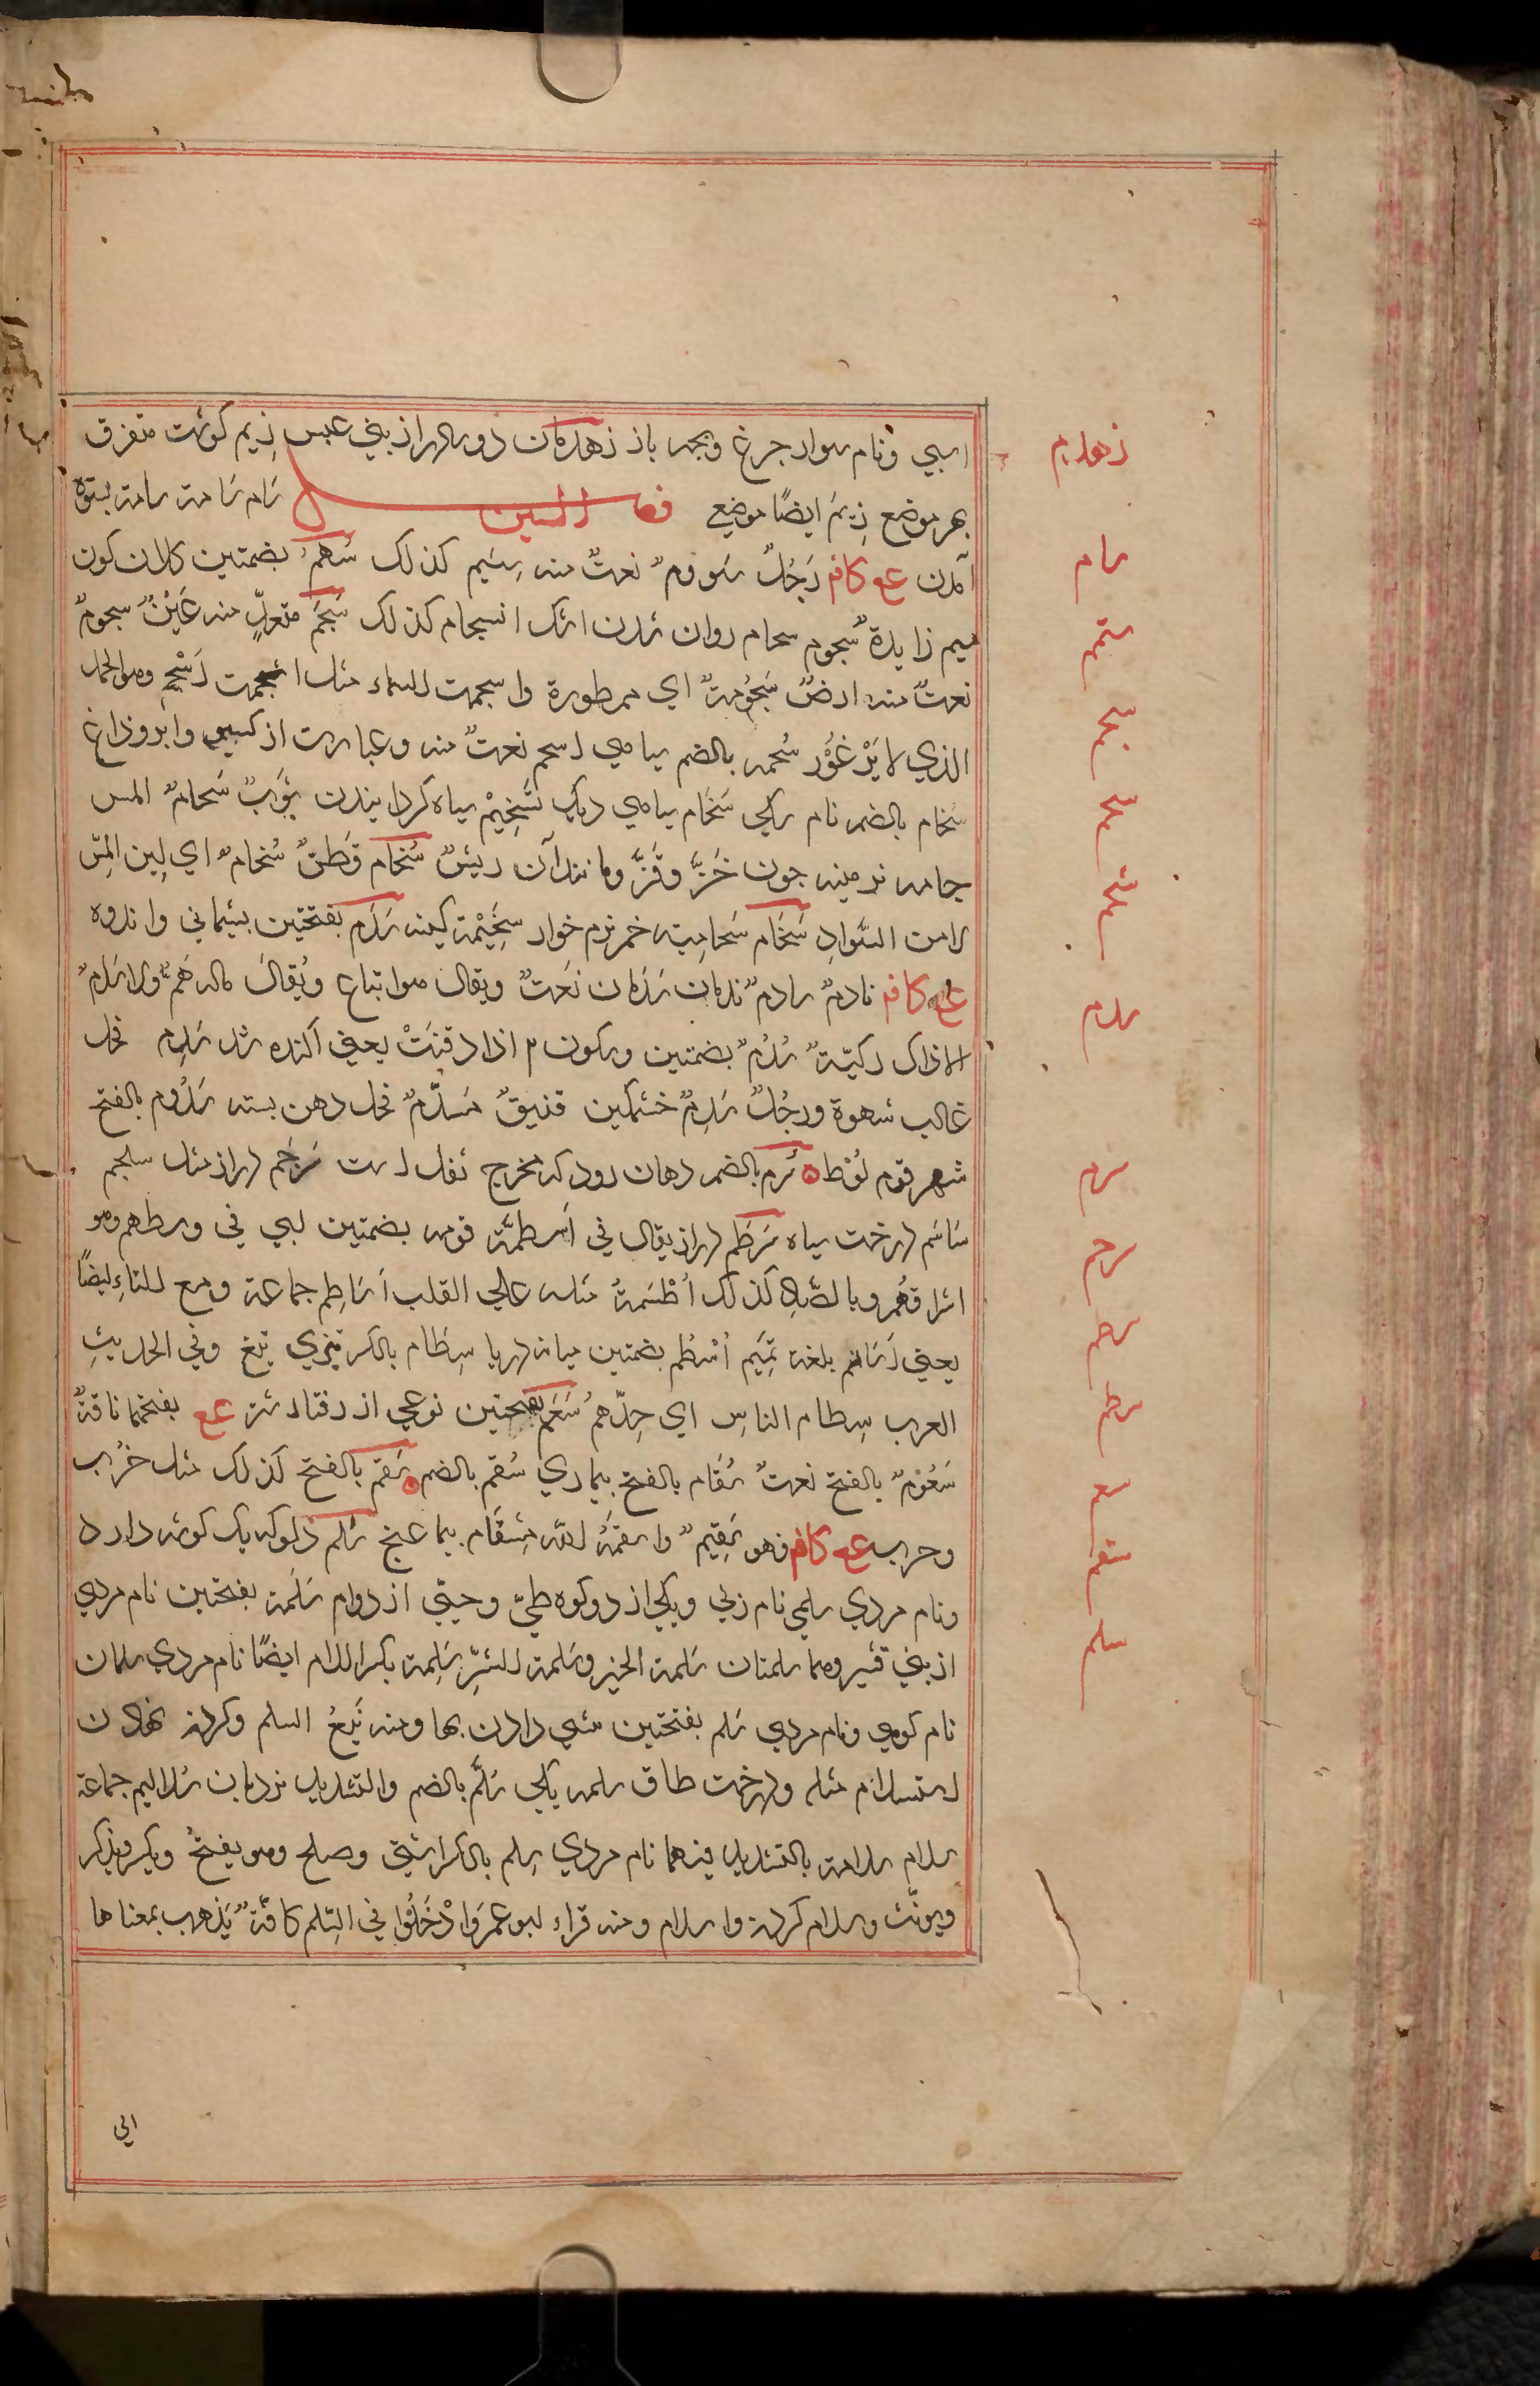 اسپی ونام سوار جرغ وبچه باز زهدمان دو برادر از بني عبس زیم گوشت متفرق
بهر موضع زِیَم ايضًا موضعي فصل السين سَام سَامة سامة بستوه
آمدن عع كافـ رَجُلٌ سَوومٌ نعتٌ منه سِیَم كذلك سُتهُمٌ بضمتين كلان كون
ميم زايدةٌ سُجوم سجام روان شدن اشك انسجام كذلك سَجَم متعدٍّ منه عَيْنٌ سجومٌ
نعتٌ منه ارضٌ مَسْجُومةٌ اي ممطورة واسجمت السماء مثل اثجمت اَسْجَم وهو الجمل
الذي لا يَرْغُوُ سُحمه بالضم سیاهي اسحم نعتٌ منه وعبارت از كيسو وابر وزاغ
سُخام بالضم نام سگی سُخَام سیاهي دیگ تَسْخِيْم سیاه گردانیدن ثَوبٌ سُخامٌ المس
جامه نرمینه جون خَزّ وقَزّ ومانند آن ریشٌ سُخام قُطنٌ سُخامٌ اي ليِن المسّ
لا من السَّوادِ سُخَام سُخاميته خمر نرم خوار سَخِيْمة كينه سَدَم بفتحتين پشیماني واندوه
عع كافـ نادمٌ سادمٌ ندمان سَدْمان نَعتٌ ويقال هو اتباع ويُقالُ ماله هَمٌّ ولا سَدَمٌ
الا ذاك ركيّةٌ سُدُمٌ بضمتين وسكون م اذا دفنَتْ يعني آكنده شد سَدِم فحل
غالب شهوة ورجُلٌ سَدِمٌ خشمگین فنيقٌ مُسدَّمٌ فحل دهن بسته سَدُوم بالفتح
شهر قوم لُوط سُرم بالضم دهان روده كه مخرج ثفل است سَرْجَم دراز مثل سلجم
سَاسَم درخت سیاه سَرطَم دراز يقال في اُسطمّة قومه بضمتين لبي في وسطهم وهو
اشرافهُم وبالصّاد كذلك اُطْسُمةٌ مثله علي القلب اَسَاطِم جماعة وجمع للتاء ايضًا
يعني اَسَاتم بلغة تَمِيَم اُسْطُم بضمتين میانه دریا سِطَام بالكسر تیزي تیغ وفي الحديثِ
العرب سِطام الناسِ اي حِدُّهم سَعَم بفتحتين نوعي از رفتار شتر عع بفتحهما ناقةٌ
سَعُوْمٌ بالفتح نعتٌ سُقَام بالفتح بیماري سُقم بالضم سَقَم بالفتح كذلك مثل حُزن
وحزن عع كافـ فهو سَقِيمٌ واسقَمهُ اللّٰه مِسْقَام بیمار غنج سَلْم دلو كه یك گوشه دارد
ونام مردي سلمی نام زني ويكي از دو كوه طيّ وحيّي از دوام سَلَمة بفتحتين نام مردي
از بني قشير وهما سلمتان سَلَمة الخير وسَلمة الشرِّ سَلِمة بكسر اللام ايضًا نام مردي سلمان
نام كوهي ونام مردي سَلَم بفتحتين پيشي دادن بها ومنه بَيعُ السلم وگردن نهادن
استسلام مثله ودرخت طاق سلمه يكي سُلَّم بالضم والتشديد نردبان سَلاليم جماعة
سلام سلامة بالتشديد فيهما نام مردي سِلم بالكسر اشتي وصلح وهو يفتحُ ويكسر ويذكر
ويونّث وسلام كردن واسلام ومنه قراء ابو عمرو اُدْخُلُوا في السِّلم كافّةً يَذهب بمعناها
زهدم
سام
ستهم
سجم
سحم
سخم
سدم
سرم
سرجم
سرطم
سطم
سعم
سقم
سلم
الي